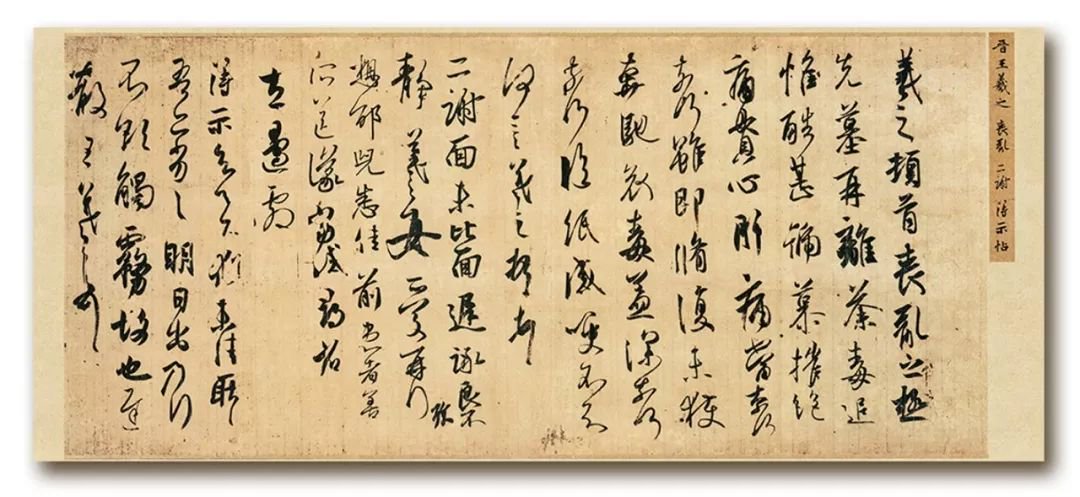 晋王羲之 喪亂 二謝 得示帖
羲之頓首喪亂之極
先墓再離荼毒追
惟酷甚號慕摧絕
痛貫心肝痛當奈何
奈何雖即脩復未獲
奔馳哀毒益深奈何
奈何臨紙感哽不知
何言羲之頓首頓首
二謝面未比面遲詠良不
靜羲之女愛再拜
想邵兒悉佳前患者善
所送議當試尋省
左邊劇
得示知足下猶未佳耿耿
吾亦劣劣明日出乃行
不欲觸霧故也遲
散王羲之頓首